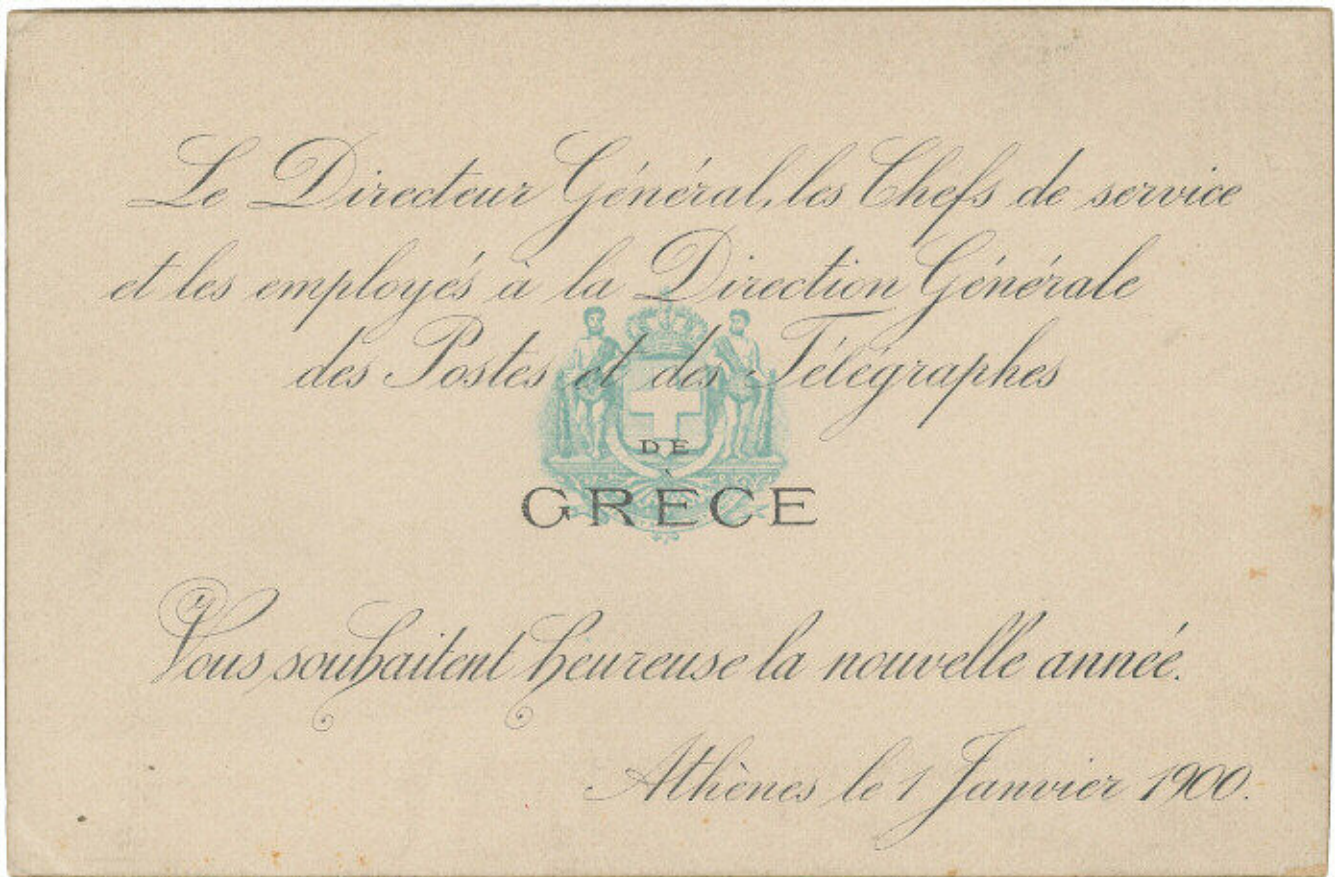 Le Directeur Général, les Chefs de service
et les employés à la Direction Générale
des Postes et des Télégraphes
DE
GRÈCE
Vous souhaitent heureuse la nouvelle année.
Athènes le 1 Janvier 1900.